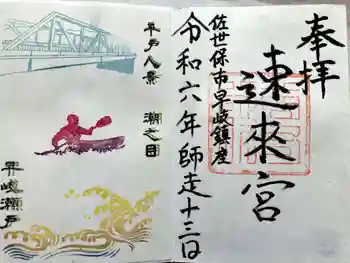 奉拝
速来宮
佐世保市早岐鎮座
令和六年師走十三日
平戸八景 潮之目
早岐瀬戸